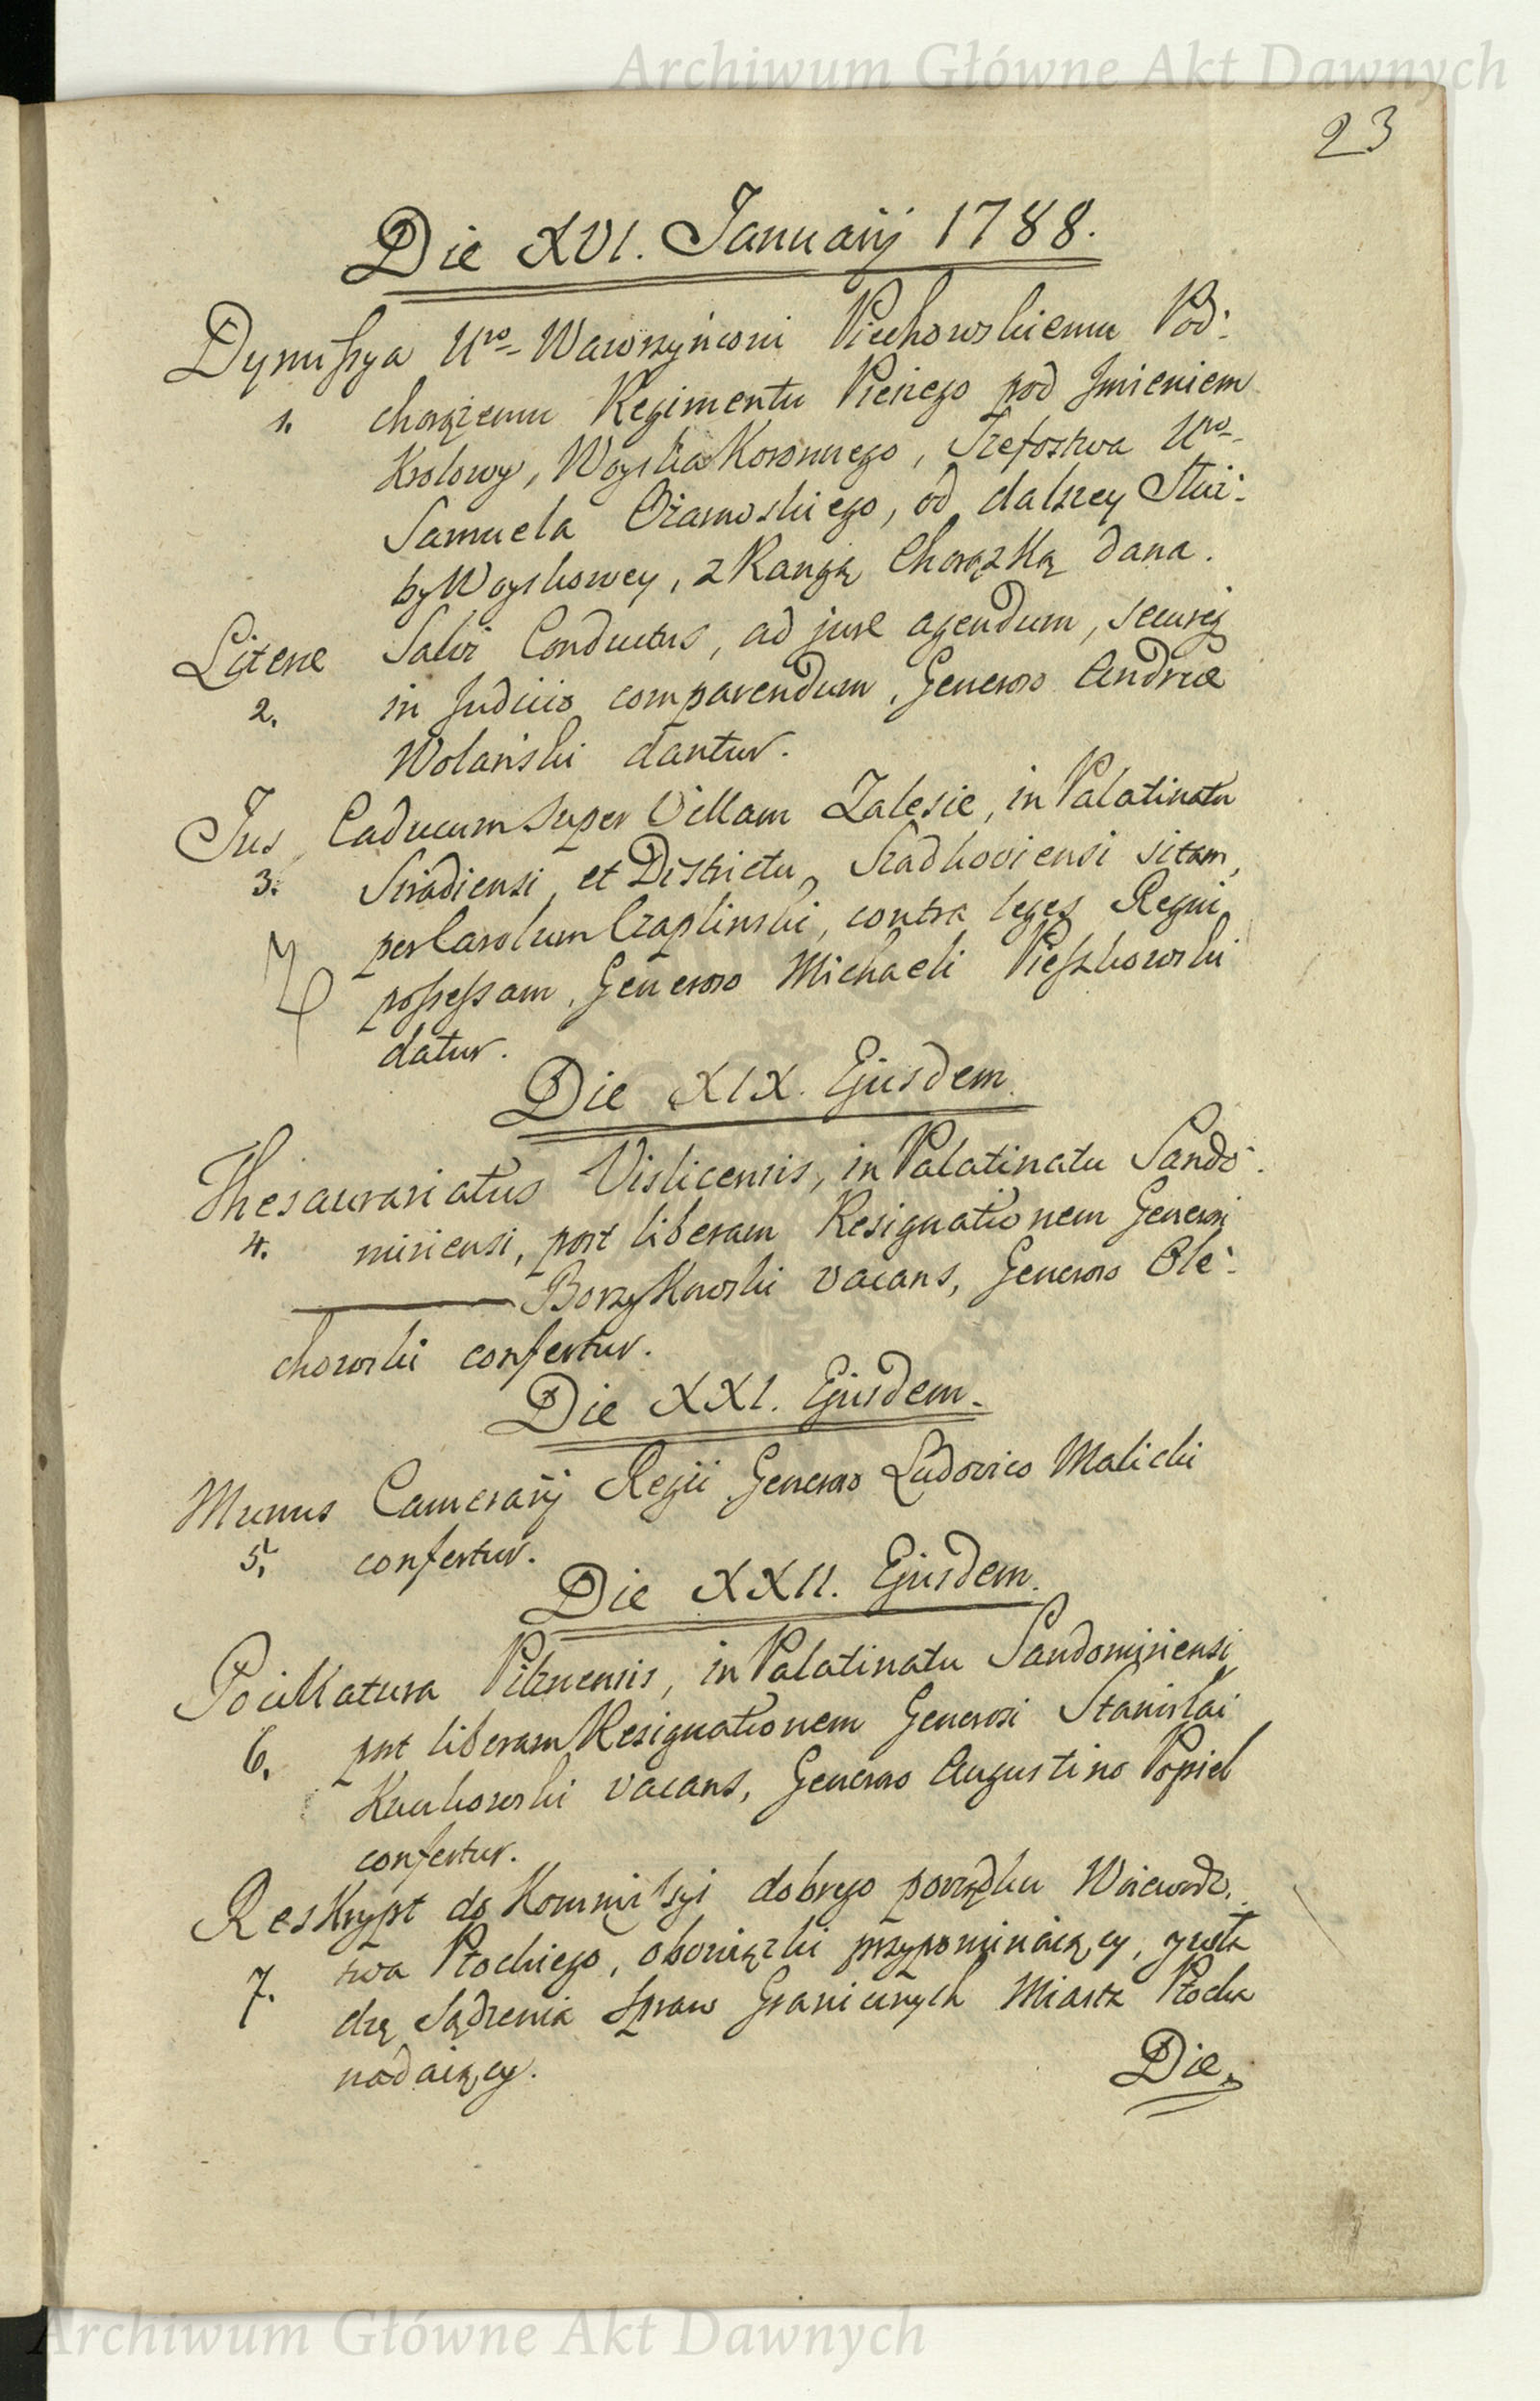 Archiwum Główne Akt Dawnych
23
Die XVI. Januarij 1788.
Dymissya Uro- Wawrzyńcowi Piechowskiemu Pod:
1. chorążemu Regimentu Pieszego pod Jmieniem
Krolowy, Woyska Koronnego, Szefostwa Uro-
Samuela Ożarowskiego, od dalszey Służ:
by Woyskowey, z Rangą Chorążką dana.
Literæ Salvi Conductus, ad jure agendum, secureq
2. in Judicio comparendum, Generoso Andreæ
Wolański dantur.
Jus Caducum super Villam Zalesie, in Palatinatu
3. Siradiensi et Districtu Szadkoviensi sitam,
per Carolum Czaplinski, contra leges Regni
possessam, Generoso Michaeli Pieszkowski
datur.
Die XIX. Ejusdem.
Thesaurariatus Vislicensis, in Palatinatu Sando:
4. miriensi, post liberam Resignationem Generosi
Borzykowski vacans, Generoso Ole:
chowski confertur.
Die XXI. Ejusdem.
Munus Camerarij Regii Generoso Ludovico Malicki
5. confertur.
Die XXII. Ejusdem.
Pocillatura Pilznensis, in Palatinatu Sandomiriensi
6. post liberam Resignationem Generosi Stanislai
vacans, Generoso Augustino Popiel
confertur.
Reskrypt do Kommissyi dobrego porządku Woiewodz:
7. twa Płockiego, obowiązki przypominaiący, y wła
dzę Sądzenia Spraw Granicznych Miasta Płocka
nadaiący.
Die
Archiwum Główne Akt Dawnych